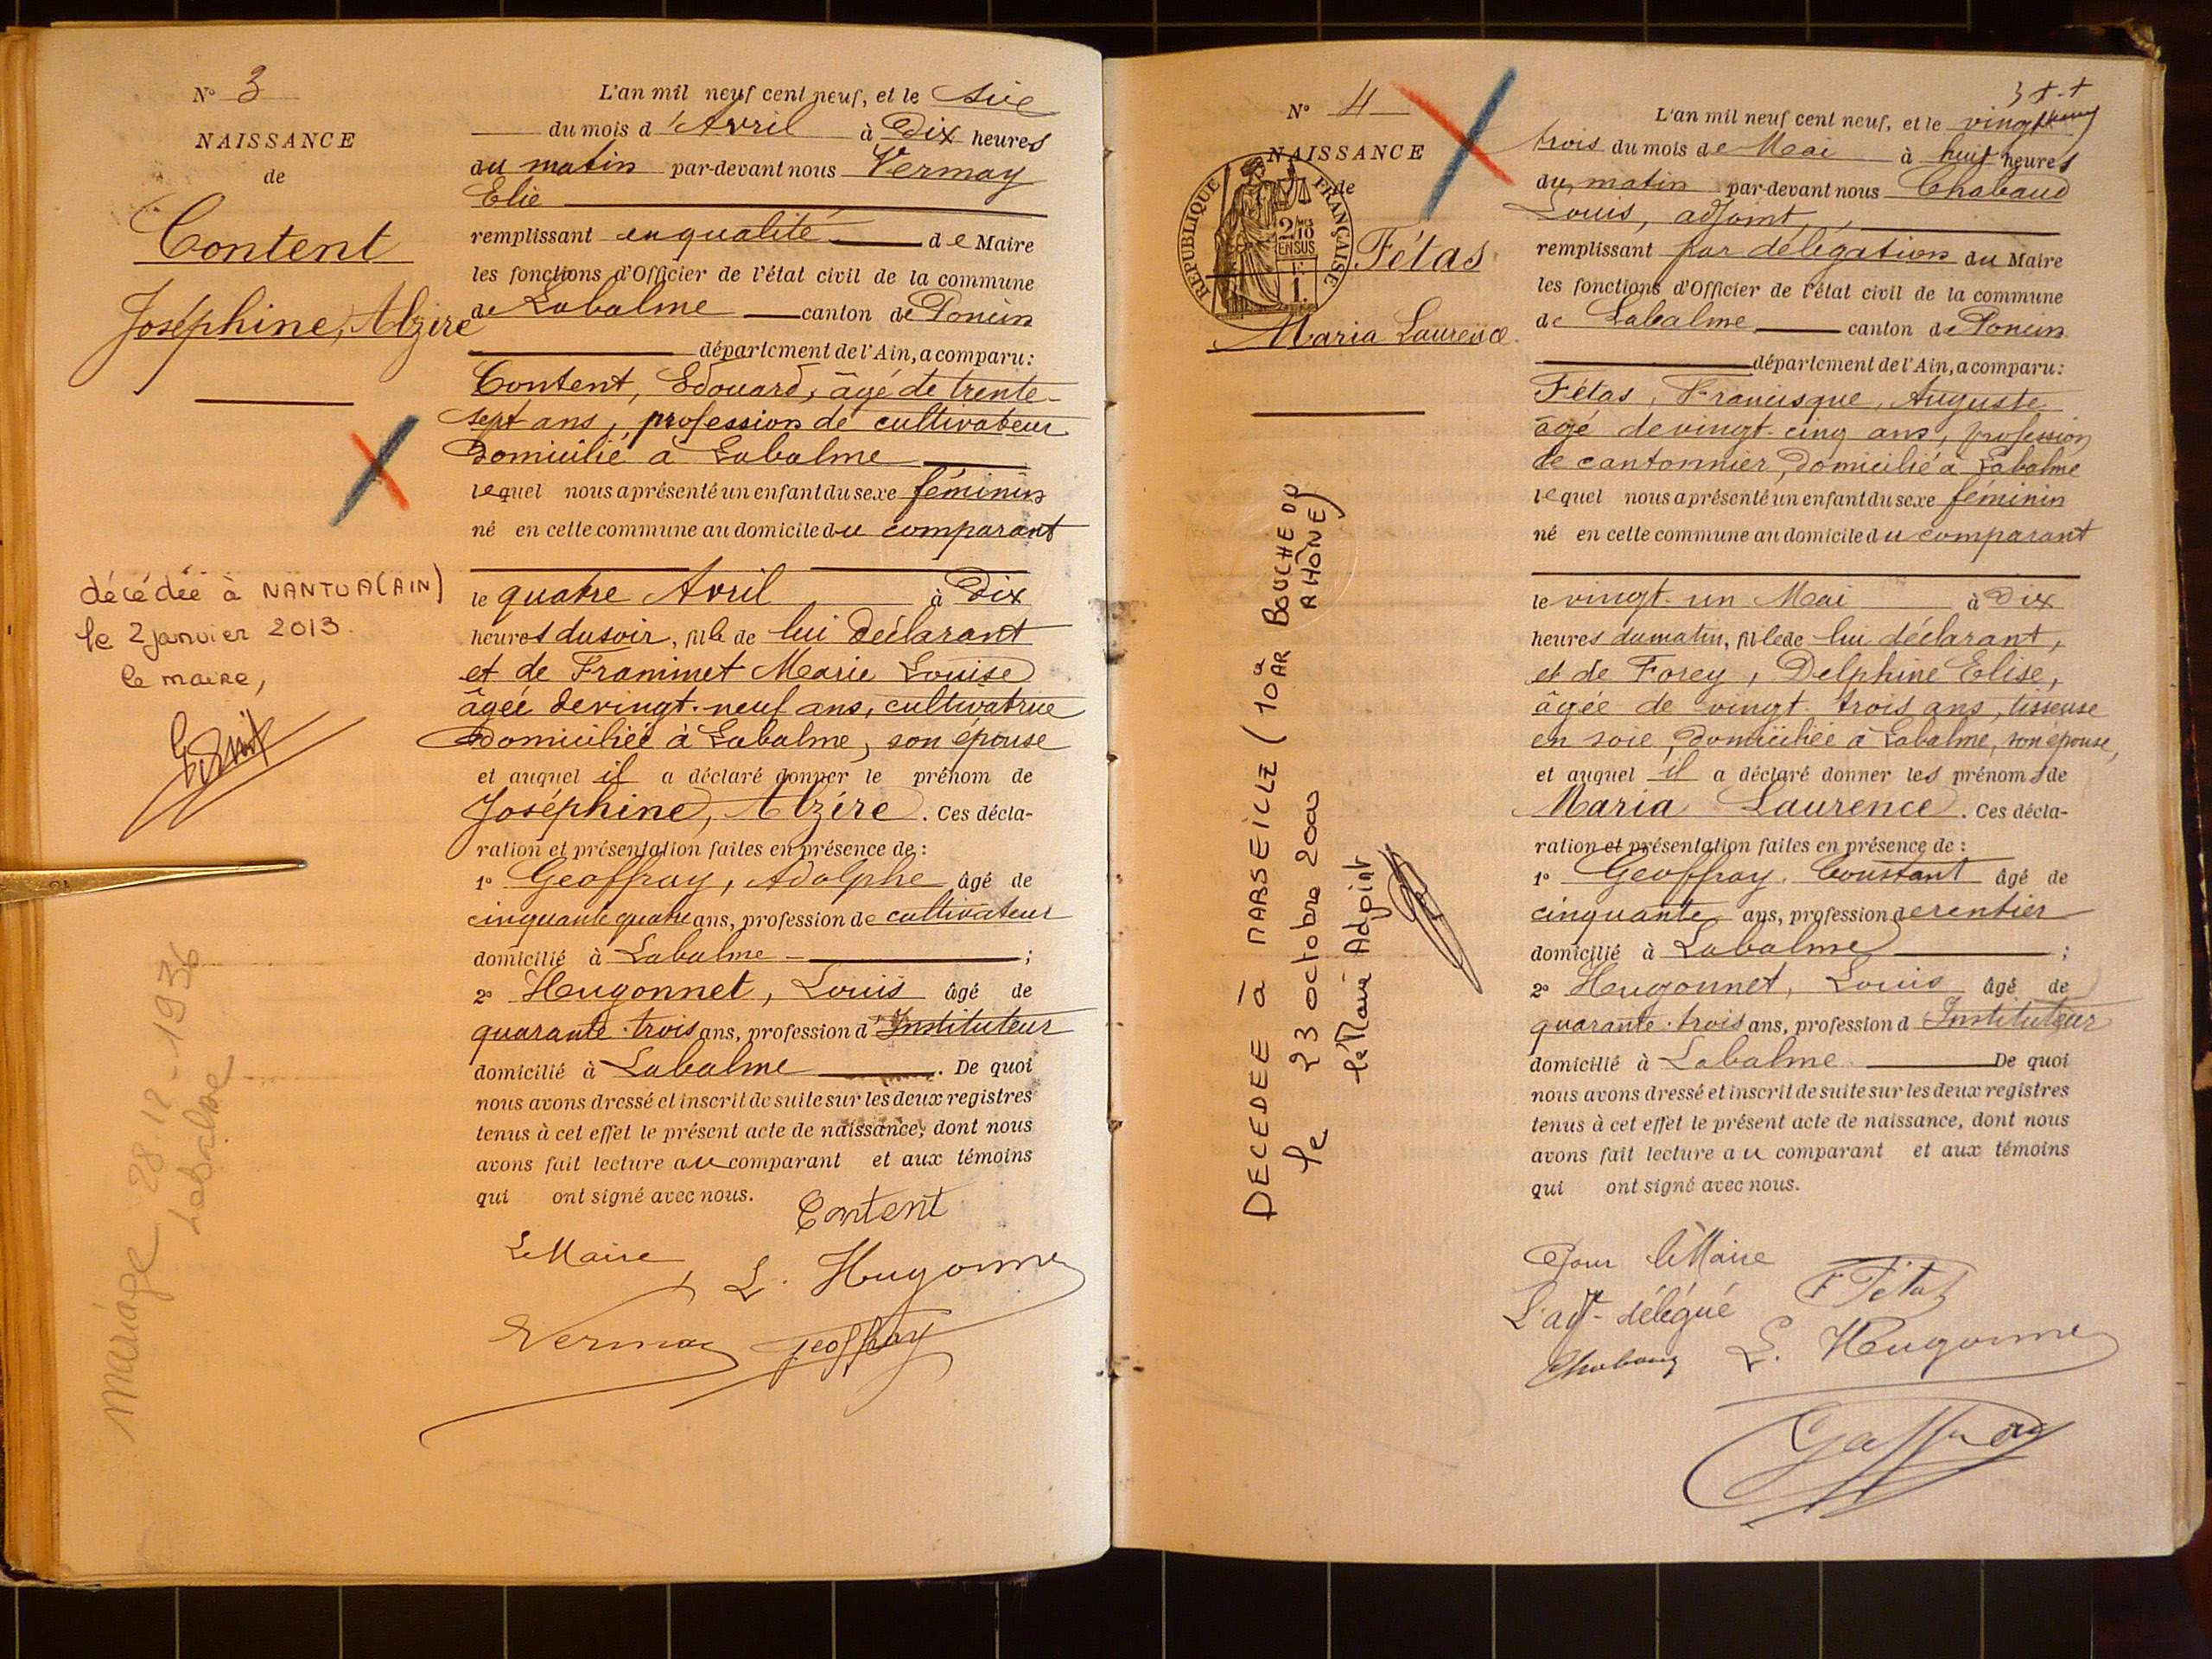 N° 3
NAISSANCE
de
Content
Joséphine, Alzire
décédée à NANTUA (AIN)
le 2 janvier 2013.
le maire,
mariage 28-12-1936
Labalme
L'an mil neuf cent neuf, et le six
du mois d'Avril à Dix heures
du matin par-devant nous Vermay
Elie
remplissant en qualité de Maire
les fonctions d'Officier de l'état civil de la commune
de Labalme canton de Poncin
département de l'Ain, a comparu :
Content, Edouard, âgé de trente-
sept ans, profession de cultivateur
Domicilié à Labalme
lequel nous a présenté un enfant du sexe féminin
né en cette commune au domicile du comparant
le quatre Avril à Dix
heures du soir, fille de lui déclarant
et de Framinet Marie Louise
âgée de vingt-neuf ans, cultivatrice
Domiciliée à Labalme, son épouse
et auquel il a déclaré donner le prénom de
Joséphine, Alzire. Ces décla-
ration et présentation faites en présence de :
1° Geoffray, Adolphe âgé de
cinquante quatre ans, profession de cultivateur
domicilié à Labalme ;
2° Hugonnet, Louis âgé de
quarante-trois ans, profession d'Instituteur
domicilié à Labalme. De quoi
nous avons dressé et inscrit de suite sur les deux registres
tenus à cet effet le présent acte de naissance, dont nous
avons fait lecture au comparant et aux témoins
qui ont signé avec nous.
Content
Le Maire, L. Hugonnet
Vermay Geoffray
N° 4
NAISSANCE
de
REPUBLIQUE FRANÇAISE
2/10
EN SUS
Fétas
Maria Laurence.
DECEDEE à MARSEILLE (10è AR BOUCHE DU RHÔNE)
le 23 octobre 2000
le Maire Adjoint
L'an mil neuf cent neuf, et le vingt
trois du mois de Mai à huit heures
du matin par-devant nous Chabaud
Louis, adjoint,
remplissant par délégation du Maire
les fonctions d'Officier de l'état civil de la commune
de Labalme canton de Poncin
département de l'Ain, a comparu :
Fétas, Francisque, Auguste
âgé de vingt-cinq ans, profession
de cantonnier, Domicilié à Labalme
lequel nous a présenté un enfant du sexe féminin
né en cette commune au domicile du comparant
le vingt-un Mai à Dix
heures du matin, fille de lui déclarant,
et de Forey, Delphine Elise,
âgée de vingt-trois ans, tisseuse
en soie, Domiciliée à Labalme, son épouse,
et auquel il a déclaré donner les prénoms de
Maria Laurence. Ces décla-
ration et présentation faites en présence de :
1° Geoffray. Constant âgé de
cinquante ans, profession de rentier
domicilié à Labalme ;
2° Hugonnet, Louis âgé de
quarante-trois ans, profession d Instituteur
domicilié à Labalme De quoi
nous avons dressé et inscrit de suite sur les deux registres
tenus à cet effet le présent acte de naissance, dont nous
avons fait lecture au comparant et aux témoins
qui ont signé avec nous.
Pour le Maire
L'adjt délégué F Fétas
Chabaud L. Hugonnet
Geoffray